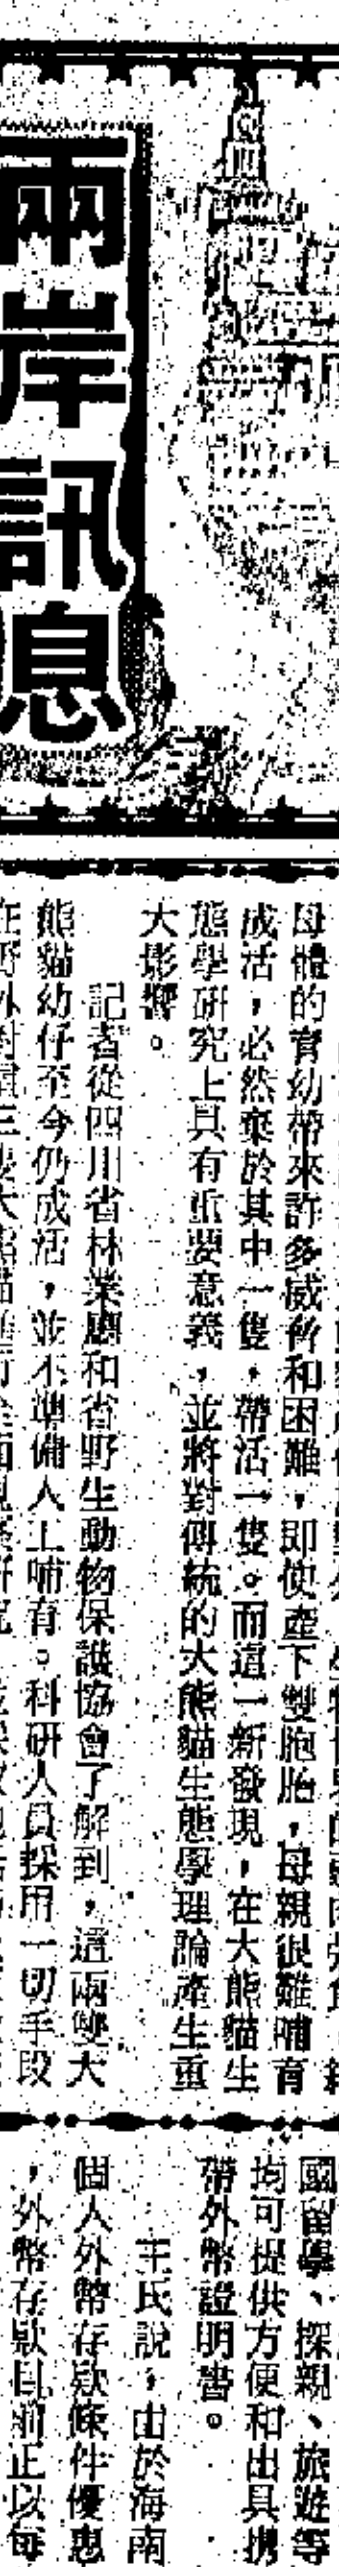 兩岸訊息
母體的育幼帶來許多威脅和困難，即使產下雙胞胎，母親很難哺育
成活，必然棄於其中一隻，帶活一隻。而這一新發現，在大熊貓生
態學研究上具有重要意義，並將對傳統的大熊貓生態學理論產生重
大影響。
記者從四川省林業廳和省野生動物保護協會了解到，這兩雙大
熊貓幼仔至今仍成活，並不準備人工哺育。科研人員採用一切手段
國留學、探親、旅遊等
均可提供方便和出具携
帶外幣證明書。
王氏說，由於海南
個人外幣存款條件優惠
，外幣存款目前正以每